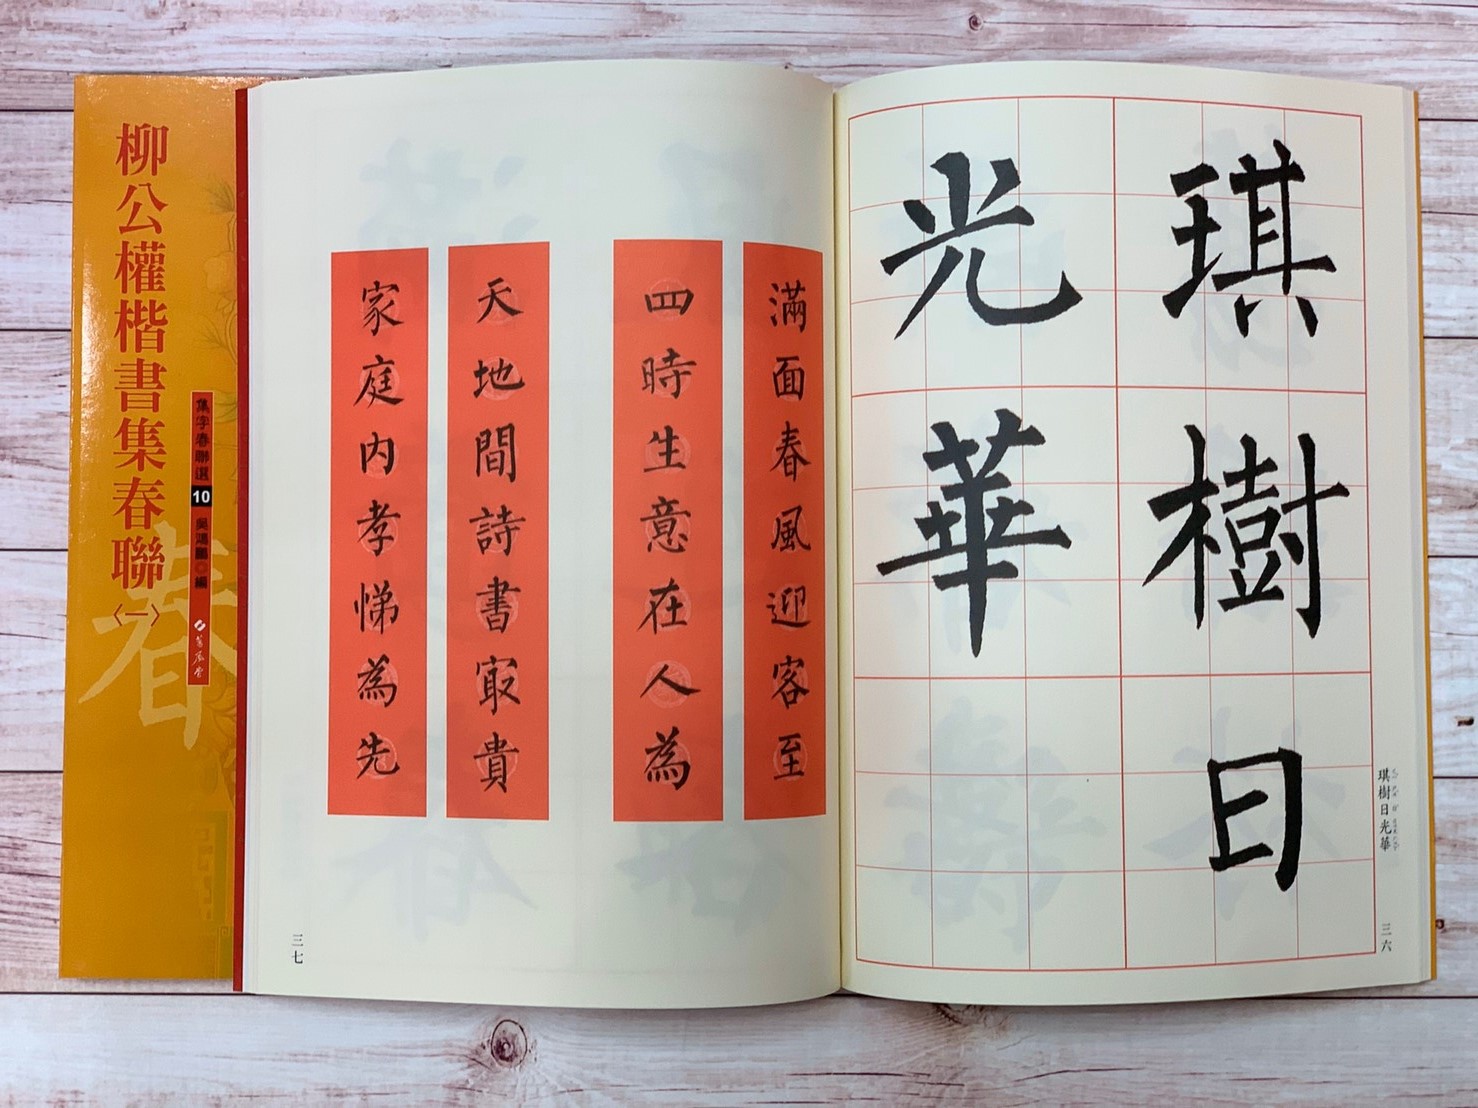 琪樹日
光華
琪樹日光華
三六
滿面春風迎客至
四時生意在人為
天地間詩書㝡貴
家庭內孝悌為先
三七
柳公權楷書集春聯〈一〉
集字春聯選10 吳鴻鵬◎編
蕙風堂
春